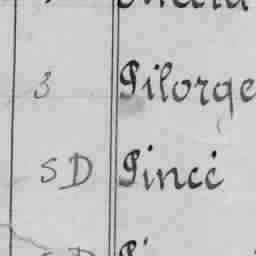 3 Pilorge
SD Pincé